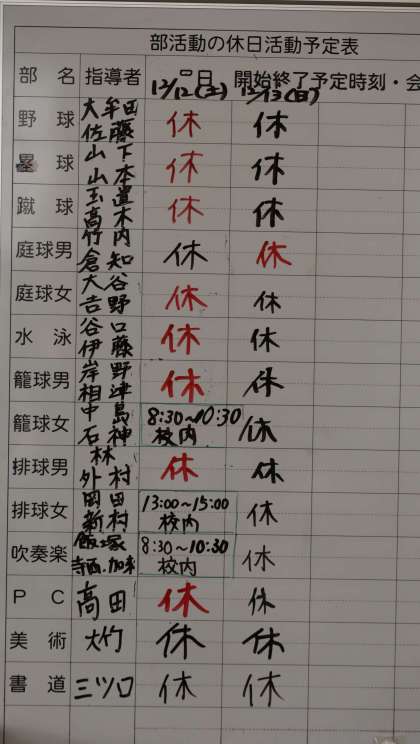 部活動の休日活動予定表
部 名 指導者 日 開始終了予定時刻・会
12/12(土) 12/13(日)
野 球 大牟田 佐藤 休 休
塁 球 山下 山本 休 休
蹴 球 玉置 高木 休 休
庭球男 竹内 倉知 休 休
庭球女 大谷 吉野 休 休
水 泳 谷口 伊藤 休 休
籠球男 岸野 相津 休 休
籠球女 中島 石神 8:30~10:30 校内 休
排球男 林 外村 休 休
排球女 岡田 新村 13:00~15:00 校内 休
吹奏楽 飯塚 寺西.加来 8:30~10:30 校内 休
P C 高田 休 休
美 術 大竹 休 休
書 道 三ツ口 休 休